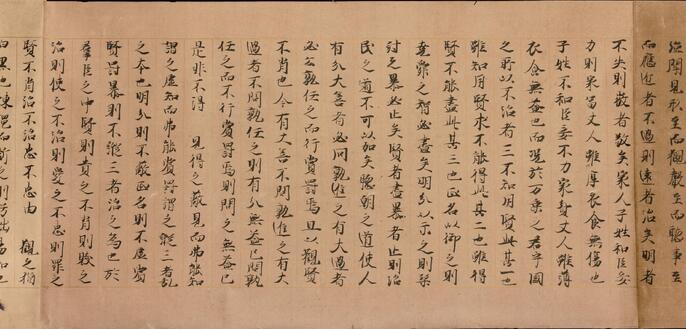 從閒見形至而觀聲至而聽事至
而應近者不過則遠者治矣明者
不失則敬者敬矣家人子姓和臣妾
力則家富丈人雖厚衣食無傷也
子姓不和臣妾不力家貧丈人雖薄
衣食無益也而況於万乘之君乎國
之所以不治者三不知用賢此其一也
雖知用賢求不能得此其二也雖得
賢不能盡此其三也正名以御之則
堯舜之智必盡矣明分以示之則桀
紂之暴必止矣賢者盡暴者止則治
民之道不可以加矣聽朝之道使人
有分大善者必問孰進之有大過者
必云孰任之而行賞罰焉且以觀賢
不肖也今有大善不問孰進之有大
過者不問孰任之則有分無益已問孰
任之而不行賞罰焉則問之無益已
是非不得 見得之蔽見而弗能知
謂之虛知而弗能賞罰謂之縱三者亂
之本也明分則不蔽正名則不虛賞
賢罰暴則不縱三者治之道也於
羣臣之中賢則貴之不肖則賤之
治則使之不治則愛之不忠則罪之
賢不肖治不治忠不忠由 觀之猶
白黑也陳繩而斲之則巧拙易知也